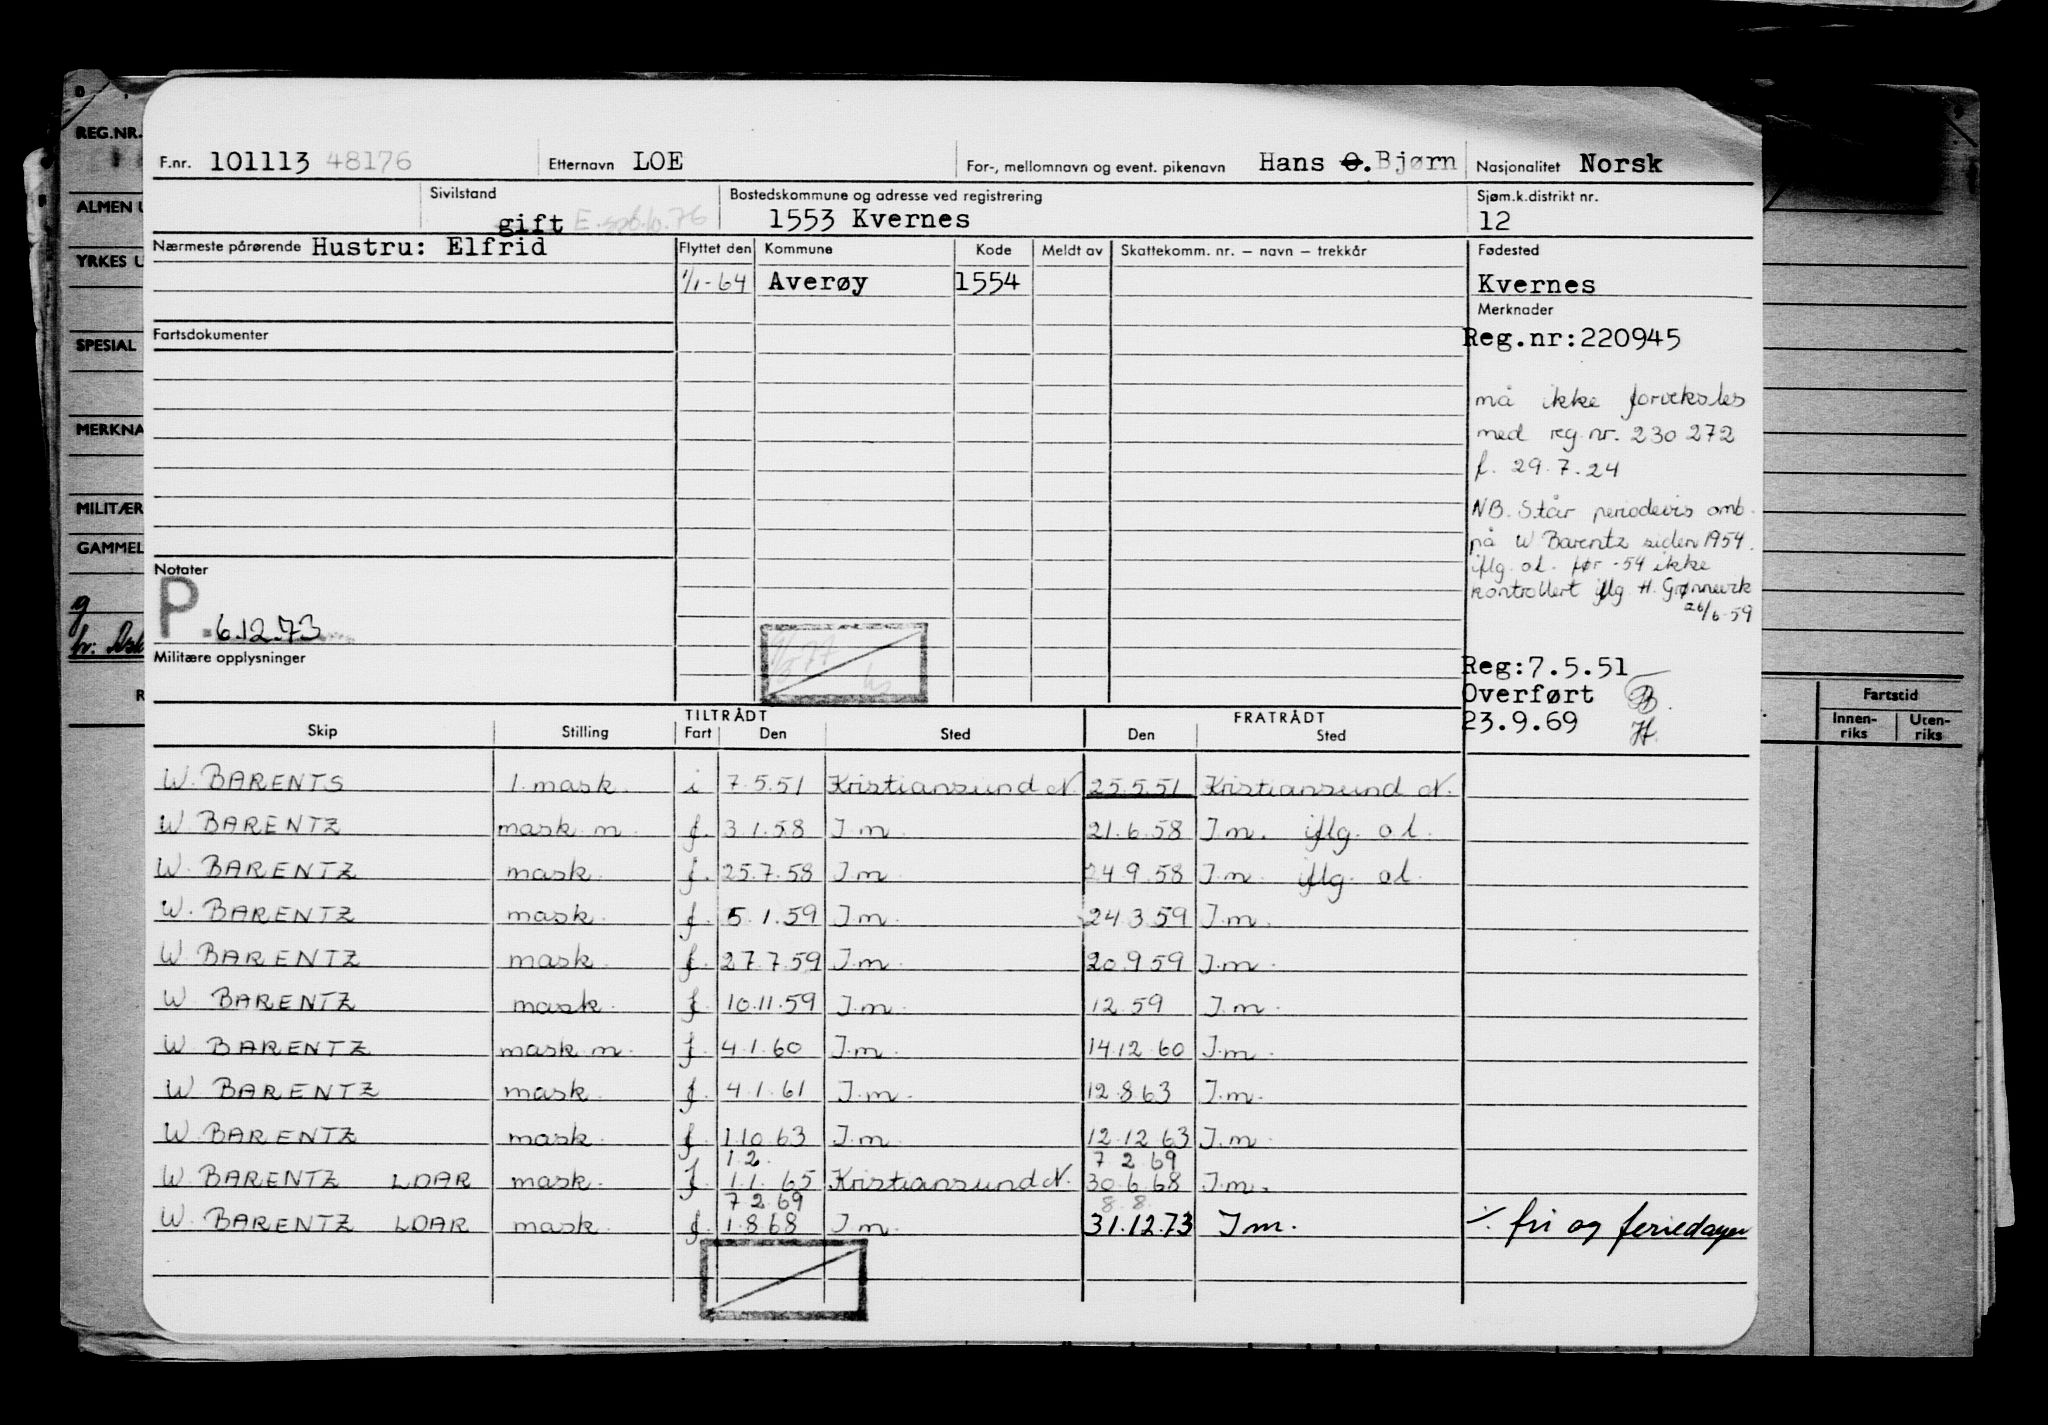 REG.NR.
ALMEN U
YRKES U
SPESIAL
MERKNA
MILITÆR
GAMMEL
F.nr. 101113 48176 Etternavn LOE For-, mellomnavn og event. pikenavn Hans O. Bjørn Nasjonalitet Norsk
Sivilstand Bostedskommune og adresse ved registrering Sjøm.k.distrikt nr.
gift 1553 Kvernes 12
Nærmeste pårørende Hustru: Elfrid Flyttet den Kommune Kode Meldt av Skattekomm. nr. – navn – trekkår Fødested
1/1-64 Averøy 1554 Kvernes
Merknader
Fartsdokumenter Reg.nr:220945
må ikke forveksles
med reg.nr. 230 272
f. 29.7.24
NB. Står periodevis omb.
på W Barentz siden 1954.
iflg. ol. før -54 ikke
kontrollert iflg H. Grønnevik
26/6-59
Notater
P. 6.12.73
Militære opplysninger
Reg:7.5.51
Overført
23.9.69
TILTRÅDT FRATRÅDT
Skip Stilling Fart Den Sted Den Sted
Fartstid
Innen-riks Uten-riks
W. BARENTS 1. mask. i 7.5.51 Kristiansund N. 25.5.51 Kristiansund N.
W. BARENTZ mask.m. f. 3.1.58 I.m. 21.6.58 I.m. iflg. ol.
W. BARENTZ mask. f. 25.7.58 I.m. 24.9.58 I.m. iflg. ol.
W. BARENTZ mask. f. 5.1.59 I.m. 24.3.59 I.m.
W BARENTZ mask. f. 27.7.59 I.m. 20.9.59 I.m.
W BARENTZ mask. f. 10.11.59 I.m. 12.59 I.m.
W BARENTZ mask.m. f. 4.1.60 I.m. 14.12.60 I.m.
W BARENTZ mask. f. 4.1.61 I.m. 12.8.63 I.m.
W. BARENTZ mask. f. 1.10.63 I.m. 12.12.63 I.m.
1.2. 7.2.69
W. BARENTZ LDAR mask. f. 1.1.65 Kristiansund N. 30.6.68 I.m.
7.2.69 8.8.
W. BARENTZ LDAR mask. f. 1.8.68 I.m. 31.12.73 I.m. ⁒ fri og feriedager